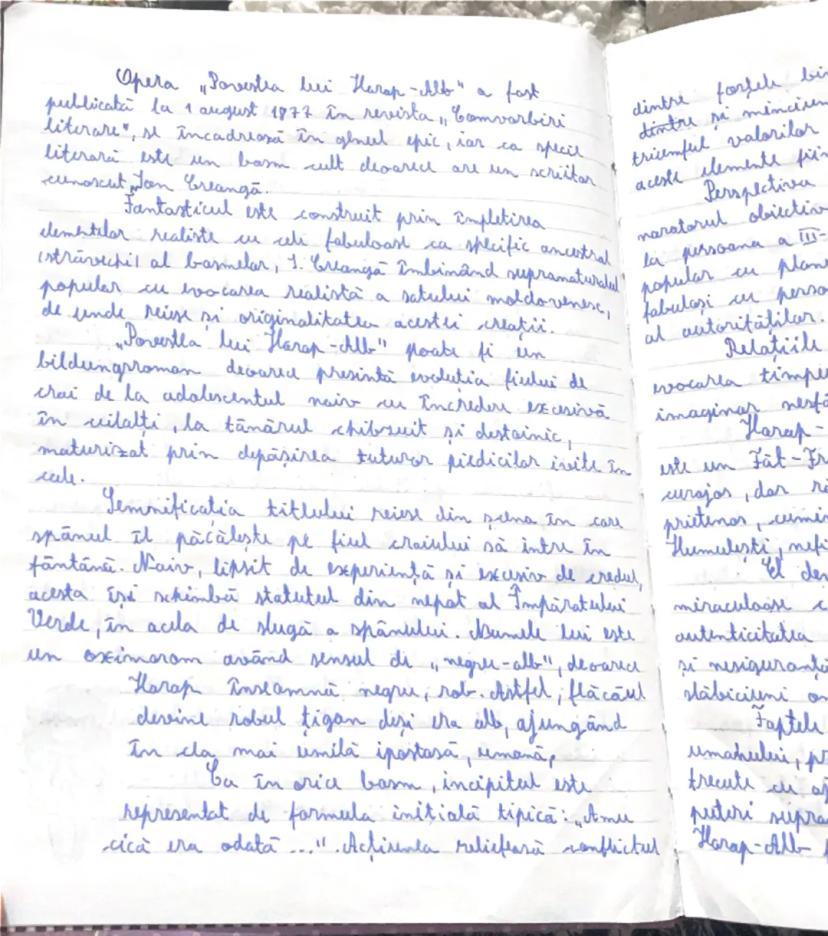 Opera „Povestea lui Harap-Alb" a fost
publicată la 1 august 1877 în revista „Convorbiri
literare", se încadrează în genul epic, iar ca specie
literară este un basm cult deoarece are un scriitor
cunoscut, Ion Creangă.
Fantasticul este construit prin împletirea
elementelor realiste cu cele fabuloase ca specific ancestral
(străvechi) al basmelor, I. Creangă îmbinând supranaturalul
popular cu evocarea realistă a satului moldovenesc,
de unde reiese și originalitatea acestei creații.
„Povestea lui Harap-Alb" poate fi un
bildungsroman deoarece prezintă evoluția fiului de
crai de la adolescentul naiv cu încredere excesivă
în ceilalți, la tânărul chibzuit și destoinic,
maturizat prin depășirea tuturor piedicilor ivite în
cale.
Semnificația titlului reiese din scena în care
spânul îl păcălește pe fiul craiului să intre în
fântână. Naiv, lipsit de experiență și excesiv de credul,
acesta își schimbă statutul din nepot al Împăratului
Verde, în acela de slugă a spânului. Numele lui este
un oximoron având sensul de „negru-alb", deoarece
Harap înseamnă negru, rob. Astfel, flăcăul
devine robul țigan deși era alb, ajungând
în cea mai umilă ipostază, umană,
Ca în orice basm, incipitul este
reprezentat de formula inițială tipică: „Amu
cică era odată ...". Acțiunea reliefează conflictul
dintre forțele bi
dintre și minciun
triumful valorilor
aceste elemente fii
Perspectiva
naratorul obiectiv
la persoana a III-
popular cu plan
fabuloși cu perso
al autorităților.
Relațiile
evocarea timpu
imaginar nesfâ
Harap-
este un Făt-Fr
curajos, dar r
prietenos, cumin
Humulești, nefi
El de
miraculoase c
autenticitatea
și nesiguranță
slăbiciuni o
Faptele
umanului, p
trecute cu aj
puteri supra
Harap-Alb f